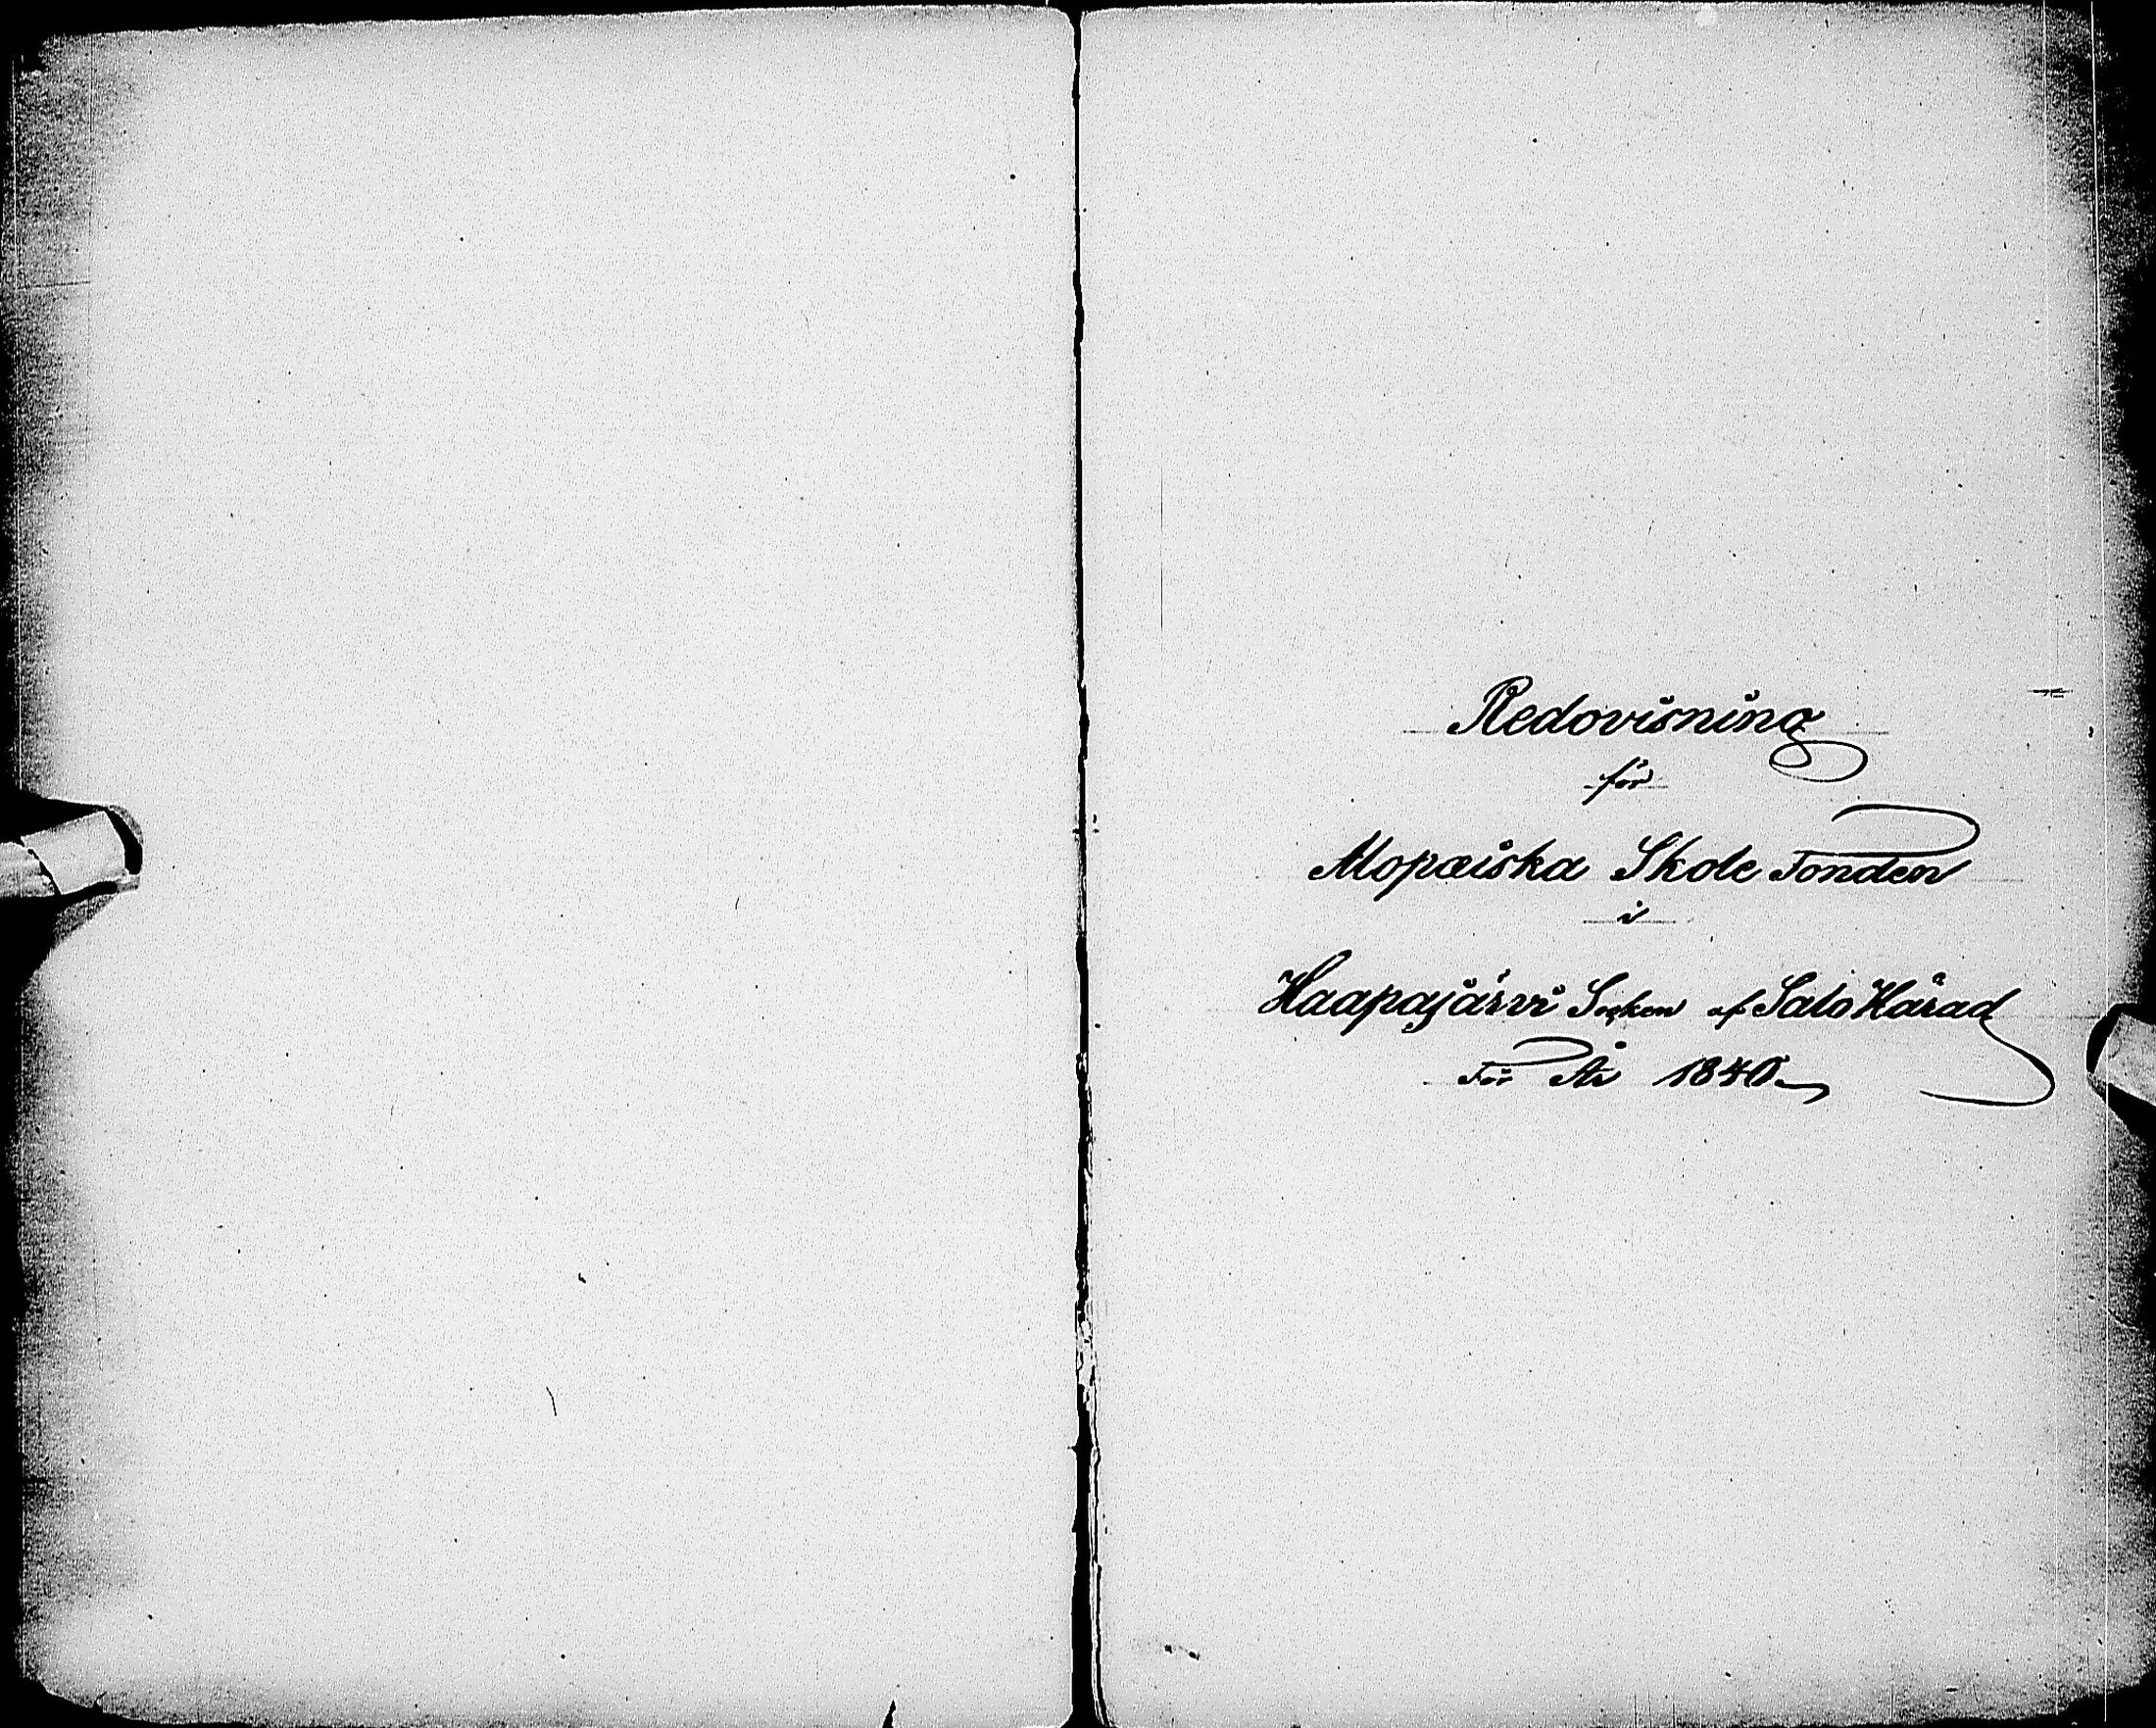 Redovisning
för
Mopæiska Skole Fonden
i
Haapajärvi Socken af Salo Härad
För År 1840